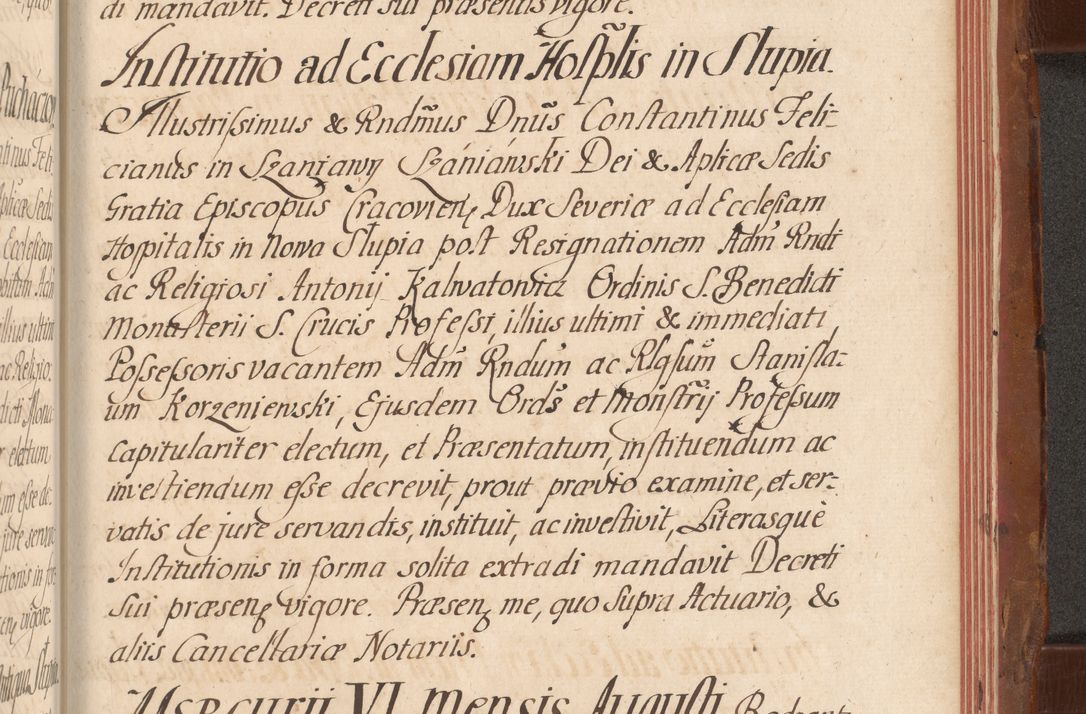 di mandavit. Decreti sui præsentis vigore.
Institutio ad Ecclesiam Hosp̃lis in Slupia.
Illustrissimus & Rndm̃us Dnus̃ Constantinus Feli-
cianus in Szaniawy Szániáwski Dei & Aplicæ Sedis
Gratia Episcopus Cracovien, Dux Severiæ ad Ecclesiam
Hospitalis in Nowa Slupia post Resignationem Adm̃ Rndi
ac Religiosi Antonij Kalwatowicz Ordinis S. Benedicti
Monasterii S. Crucis Professi, illius ultimi & immediati
Possessoris vacantem Adm̃ Rndum̃ ac Rlgsum̃ Stanisla-
um Korzeniewski, Ejusdem Ords̃ et Monstr̃ij Professum
Capitulariter electum, et Præsentatum, instituendum ac
investiendum esse decrevit, prout prævio examine, et ser-
vatis de jure servandis, instituit, ac investivit, Literasque
Institutionis in forma solita extradi mandavit Decreti
Sui præsen, vigore. Præsen, me, quo Supra Actuario, &
aliis Cancellariæ Notariis.
Mercurii VI Mensis Augusti